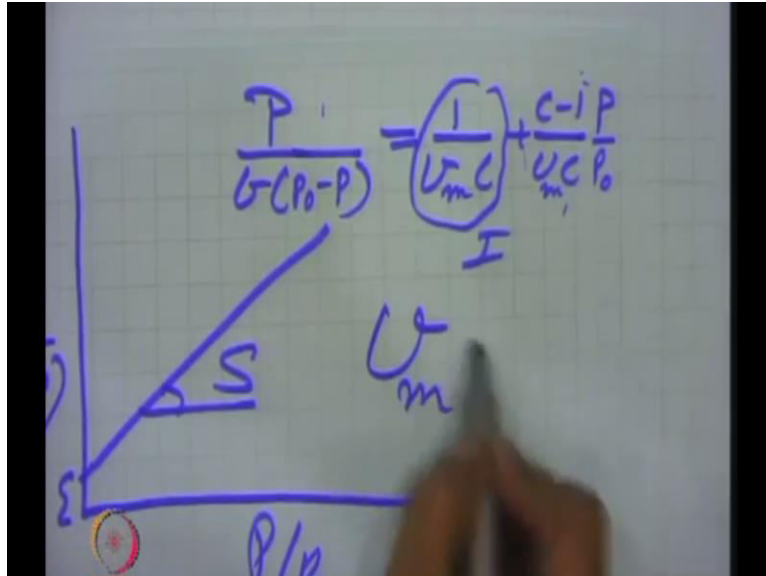 P / v(P₀-P) = 1 / vₘC + C-1 / vₘC P / P₀
I
S
vₘ